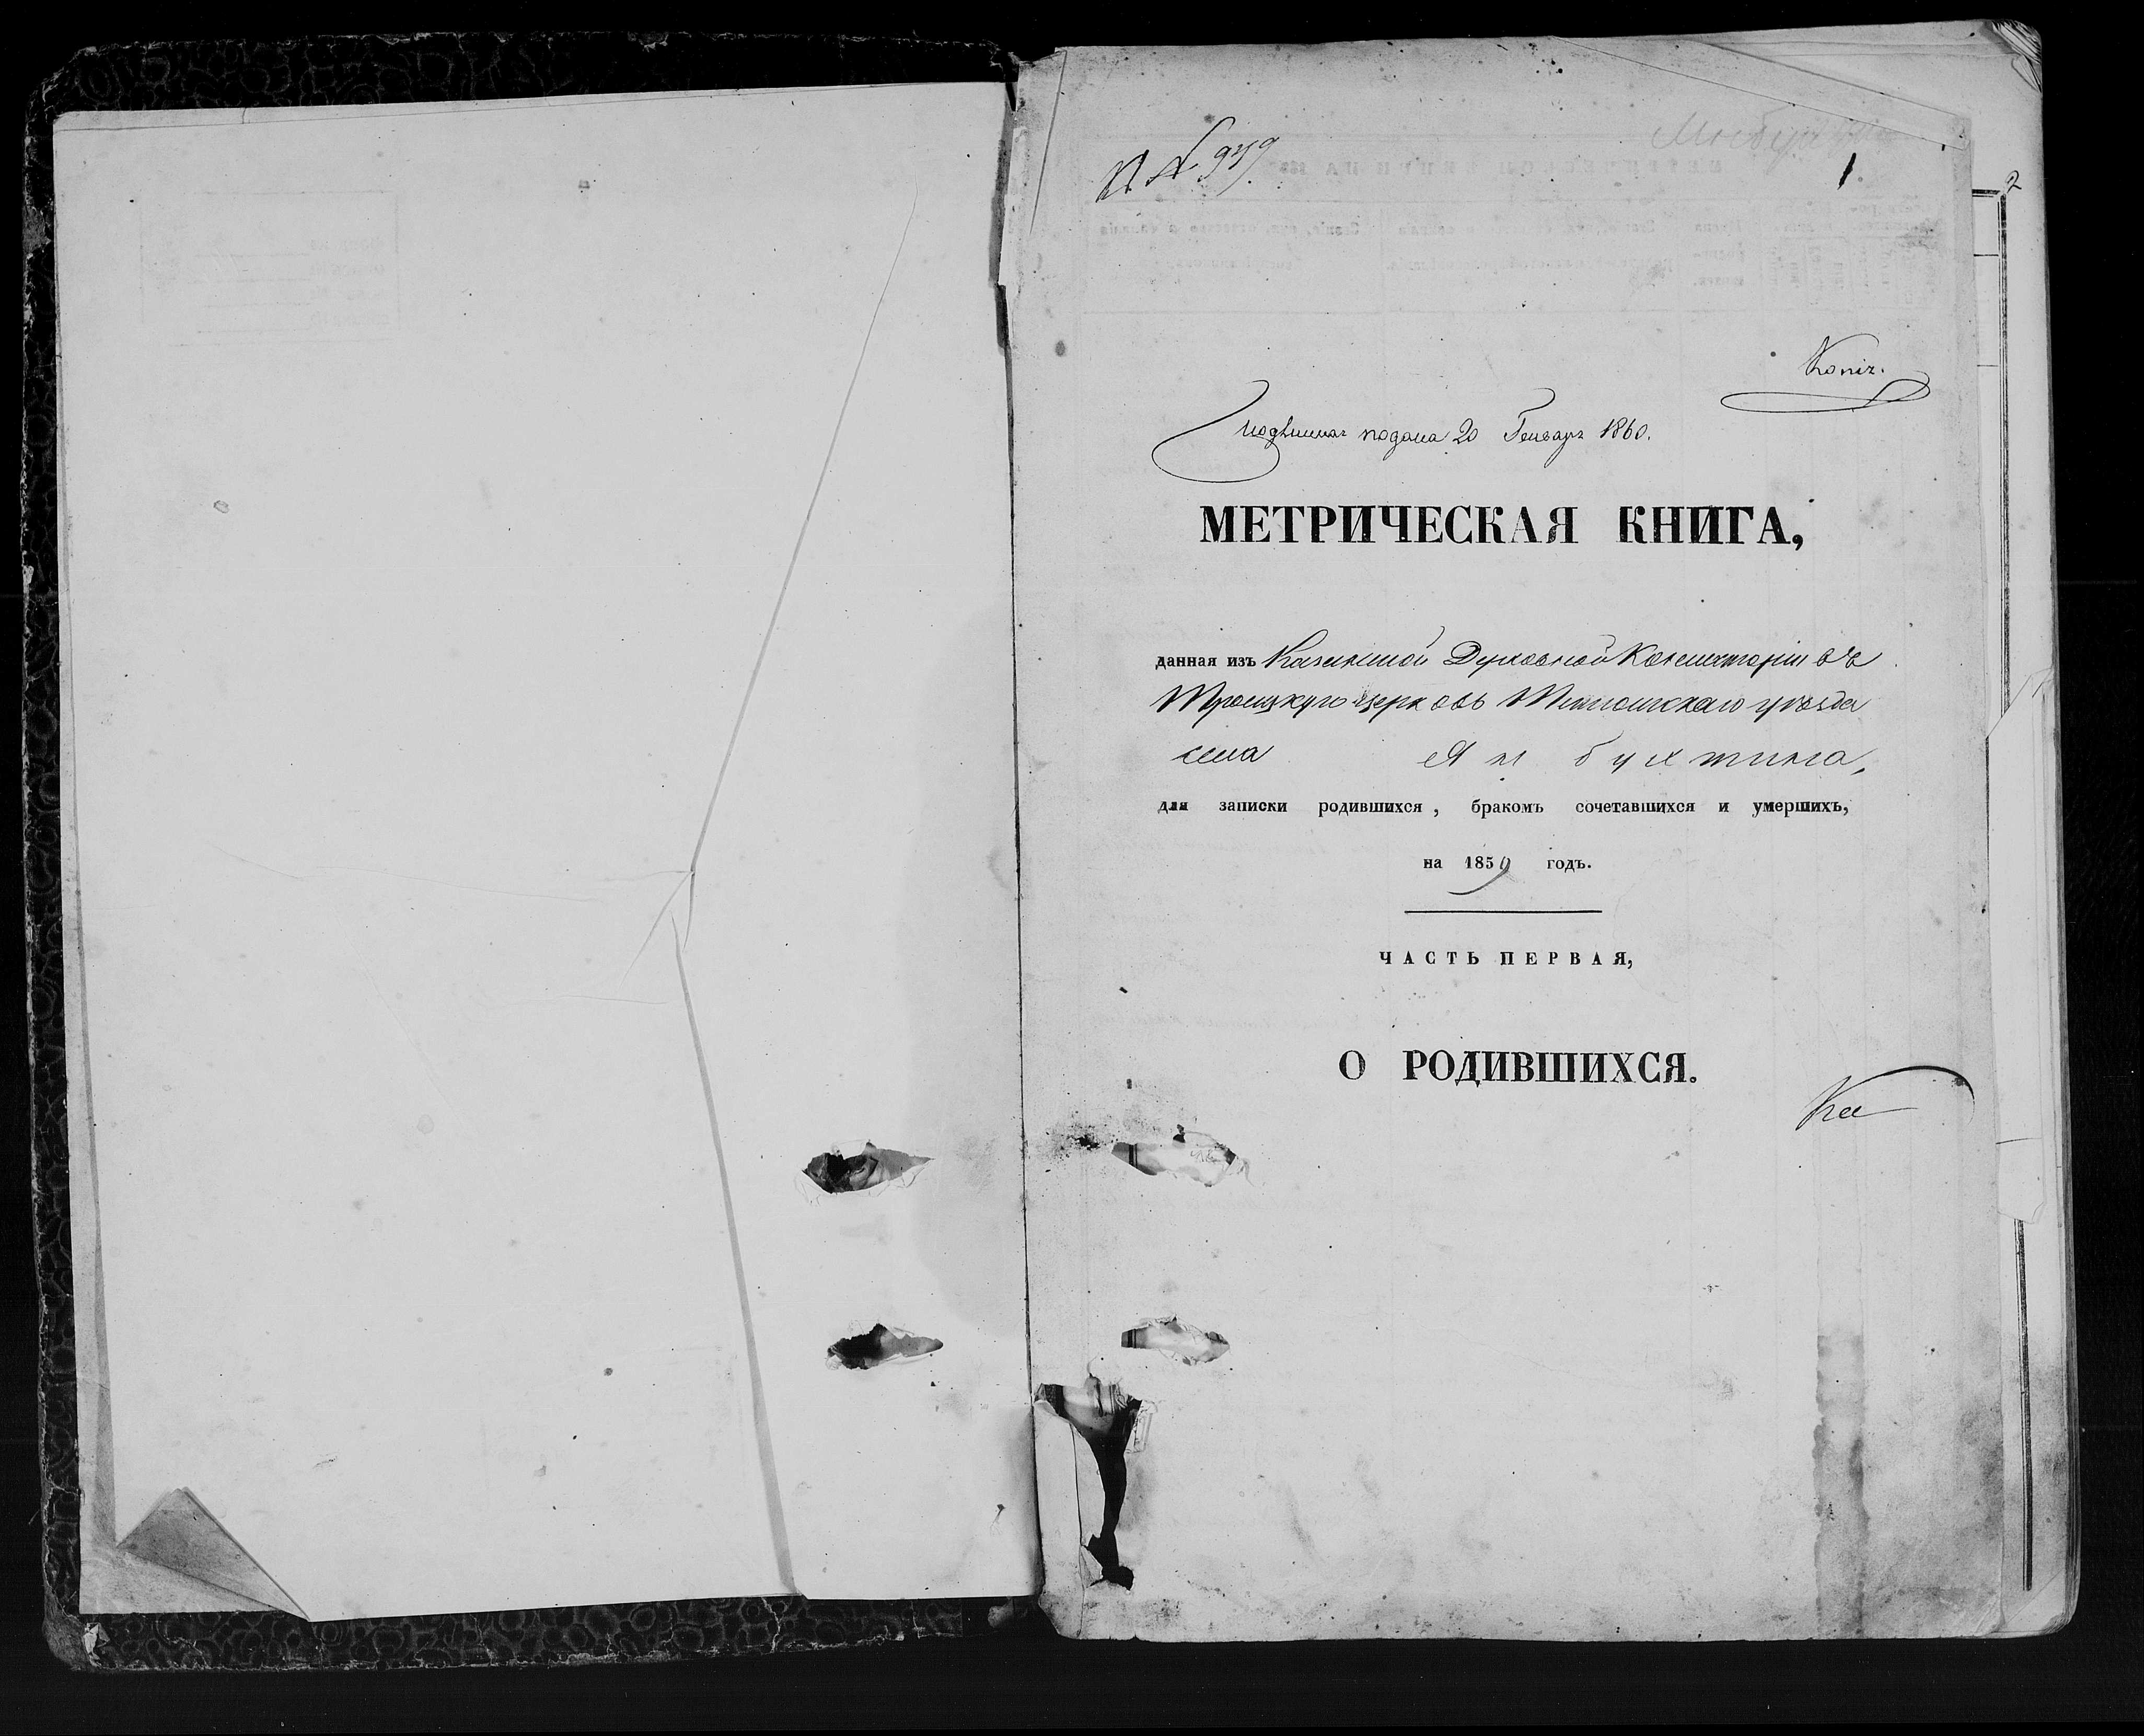 № 979.
1
2
Копія.
Подлинная подана 20 Генваря 1860.
МЕТРИЧЕСКАЯ КНИГА,
данная изъ Казанской Духовной Консисторіи въ
Троицкую церковь Тетюшскаго уѣзда
села Янбухтина,
для записки родившихся, бракомъ сочетавшихся и умершихъ,
на 1859 годъ.
ЧАСТЬ ПЕРВАЯ,
О РОДИВШИХСЯ.
Ка